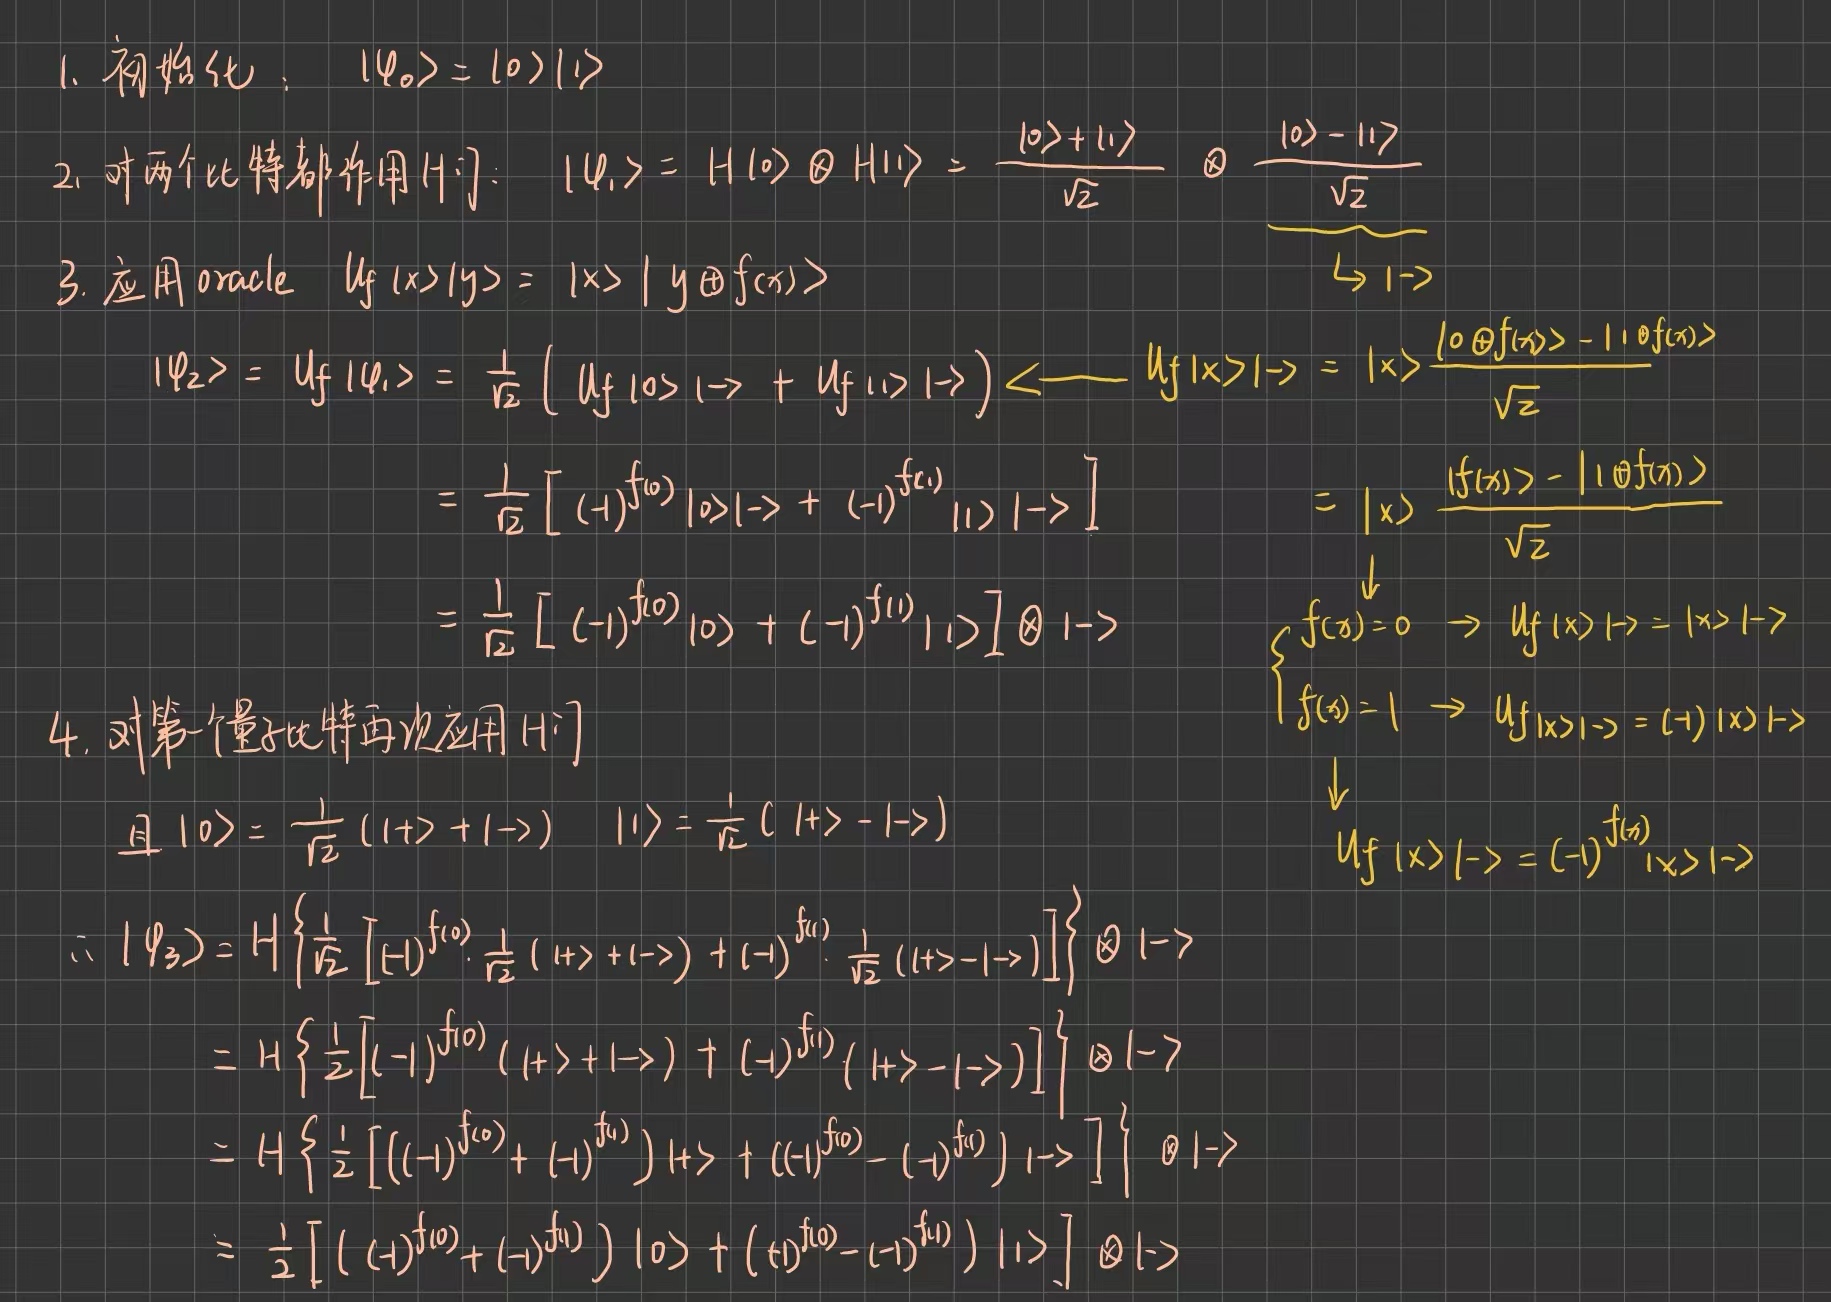 1. 初始化: |φ₀> = |0>|1>
2. 对两个比特都作用H门: |φ₁> = H|0> ⊗ H|1> = (|0>+|1>)/√2 ⊗ (|0>-|1>)/√2
↳ |->
3. 应用oracle Uf|x>|y> = |x>|y⊕f(x)>
|φ₂> = Uf|φ₁> = 1/√2 ( Uf|0>|-> + Uf|1>|-> ) ← Uf|x>|-> = |x> (|0⊕f(x)> - |1⊕f(x)>)/√2
= 1/√2 [ (-1)^f(0) |0>|-> + (-1)^f(1) |1>|-> ]
= |x> (|f(x)> - |1⊕f(x)>)/√2
↓
= 1/√2 [ (-1)^f(0) |0> + (-1)^f(1) |1> ] ⊗ |->
{ f(x)=0 → Uf|x>|-> = |x>|->
f(x)=1 → Uf|x>|-> = (-1)|x>|->
↓
Uf|x>|-> = (-1)^f(x) |x>|->
4. 对第一个量子比特再次应用H门
且 |0> = 1/√2 (|+> + |->) |1> = 1/√2 (|+> - |->)
∴ |φ₃> = H{ 1/√2 [ (-1)^f(0) · 1/√2 (|+> + |->) + (-1)^f(1) · 1/√2 (|+> - |->) ] } ⊗ |->
= H{ 1/2 [ (-1)^f(0) (|+> + |->) + (-1)^f(1) (|+> - |->) ] } ⊗ |->
= H{ 1/2 [ ((-1)^f(0) + (-1)^f(1)) |+> + ((-1)^f(0) - (-1)^f(1)) |-> ] } ⊗ |->
= 1/2 [ ((-1)^f(0) + (-1)^f(1)) |0> + ((-1)^f(0) - (-1)^f(1)) |1> ] ⊗ |->